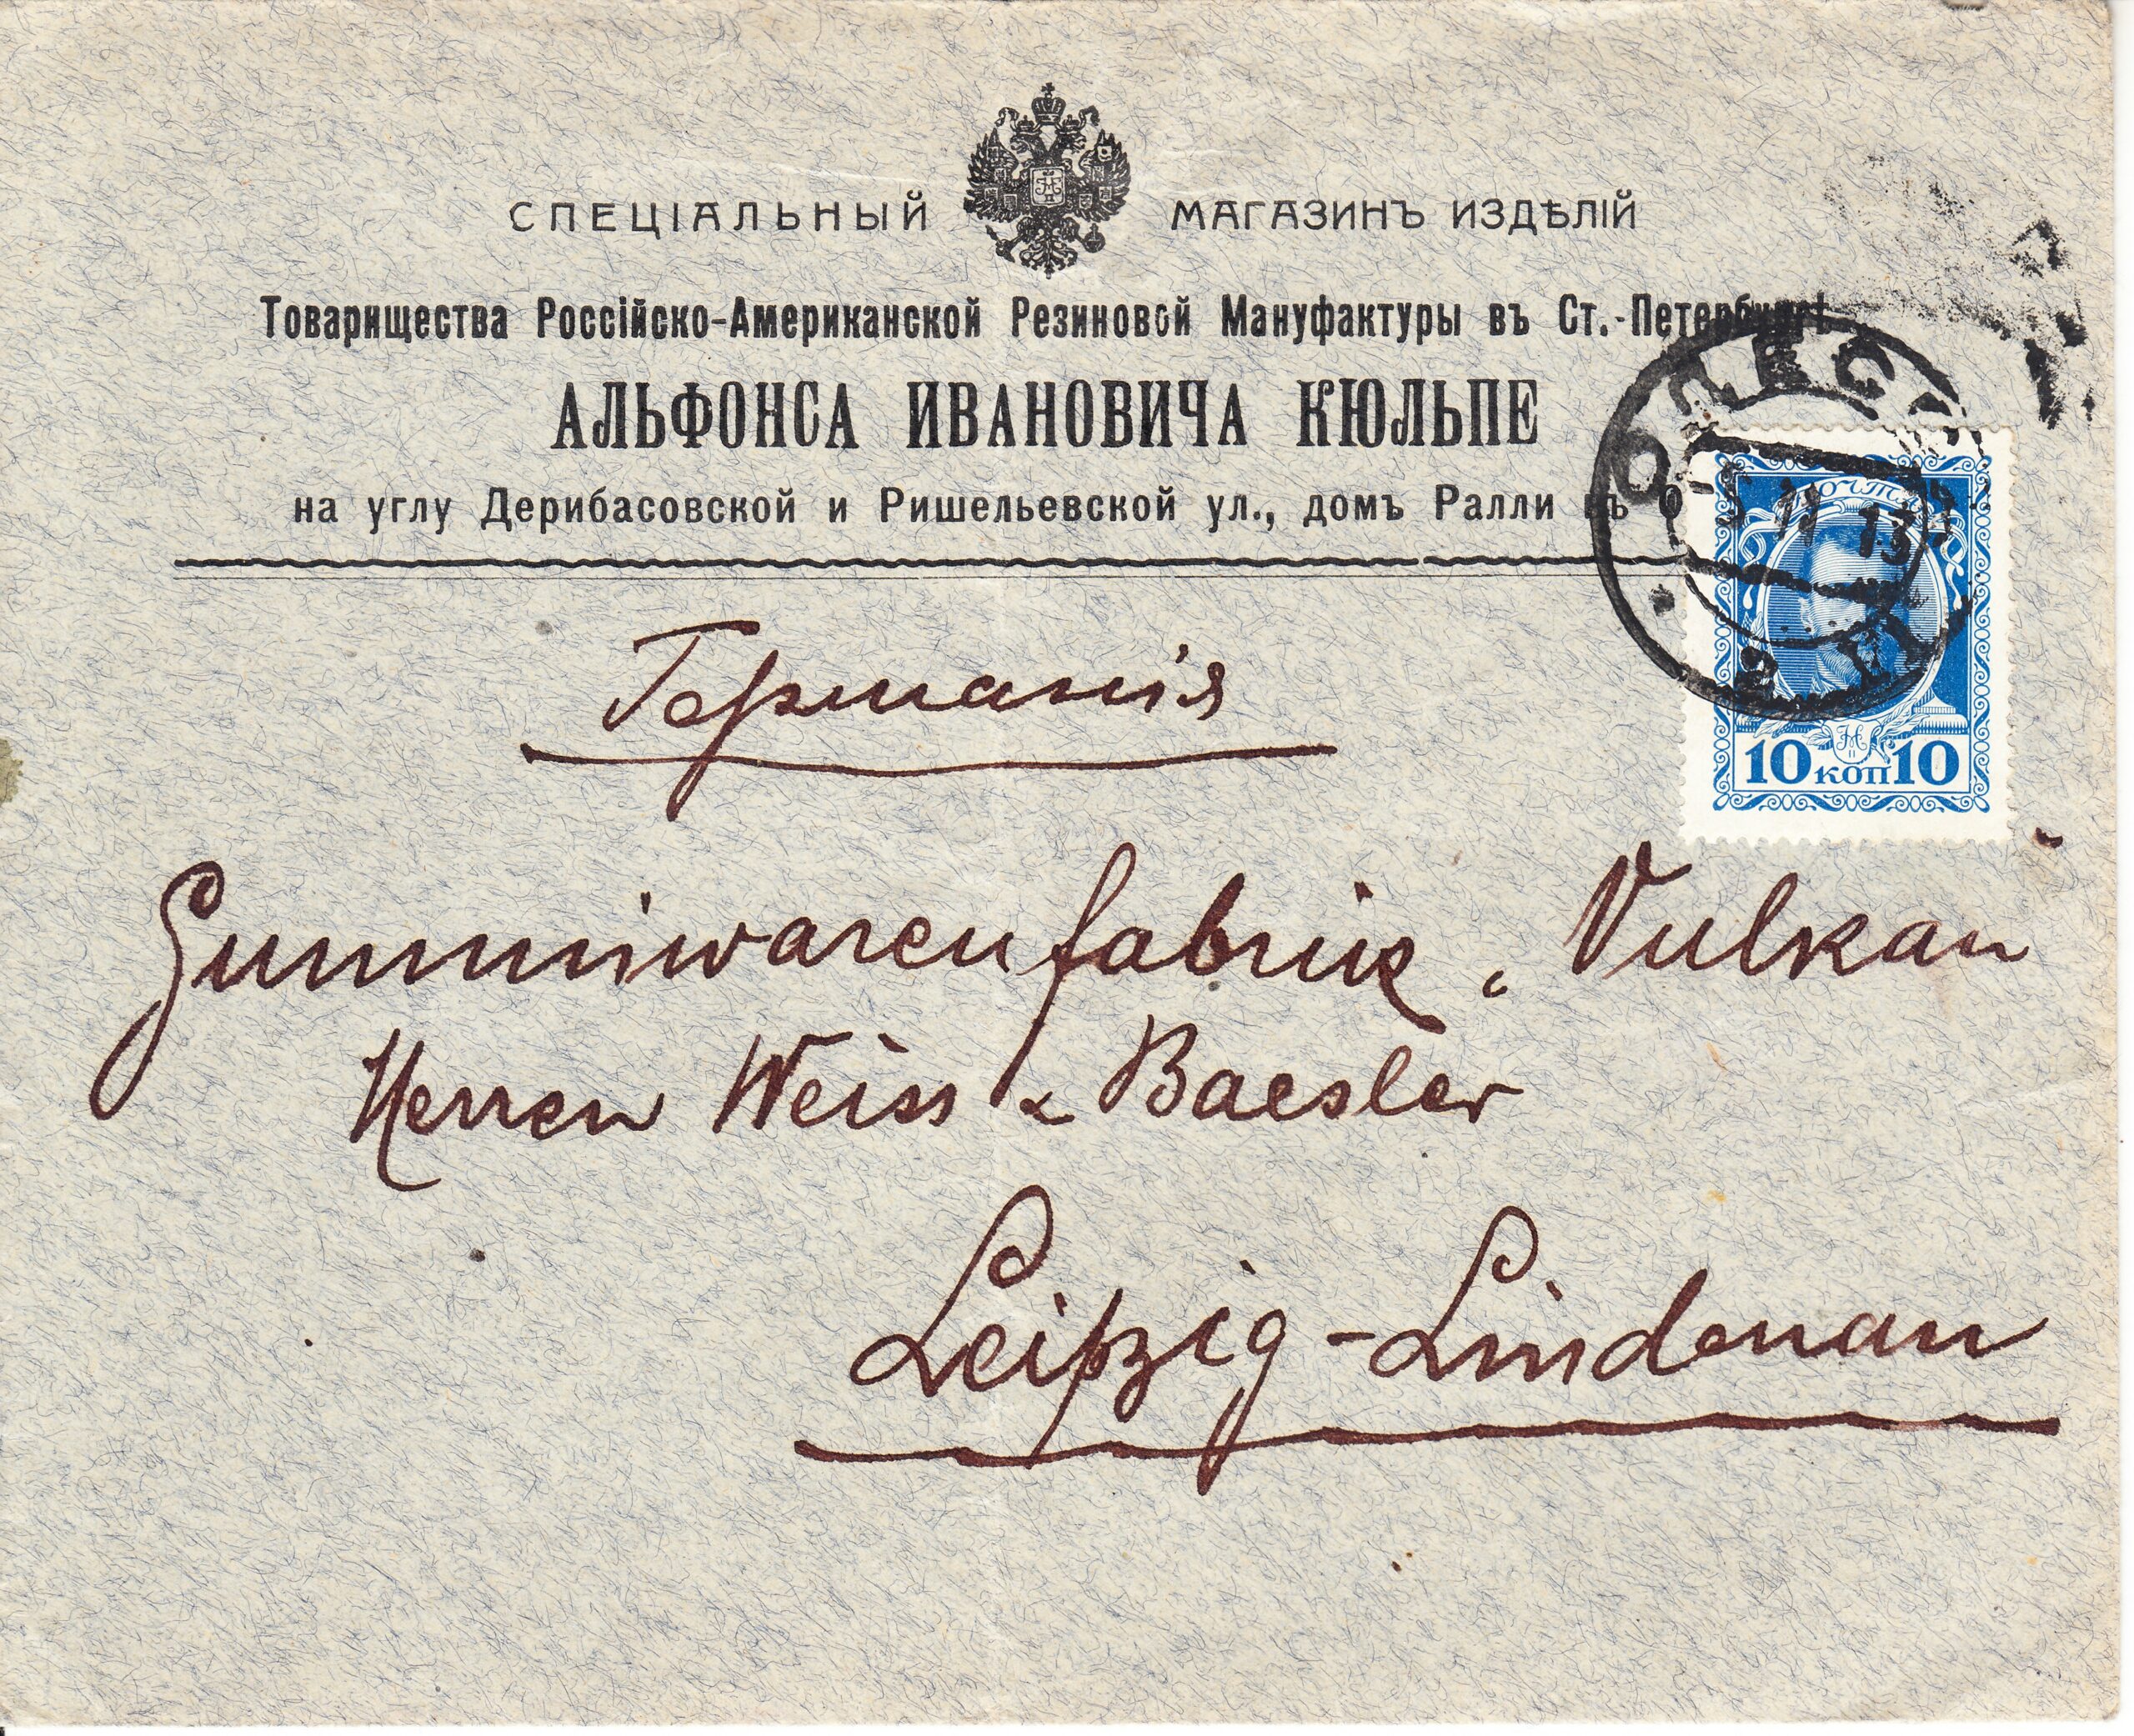 СПЕЦІАЛЬНЫЙ МАГАЗИНЪ ИЗДѢЛІЙ
Товарищества Россійско-Американской Резиновой Мануфактуры въ Ст.-Петербургѣ
АЛЬФОНСА ИВАНОВИЧА КЮЛЬПЕ
на углу Дерибасовской и Ришельевской ул., домъ Ралли въ
ОДЕССА
11 13
ПОЧТА
10 КОП 10
Германія
Gummiwarenfabrik „Vulkan"
Herren Weiss & Baesler
Leipzig-Lindenau